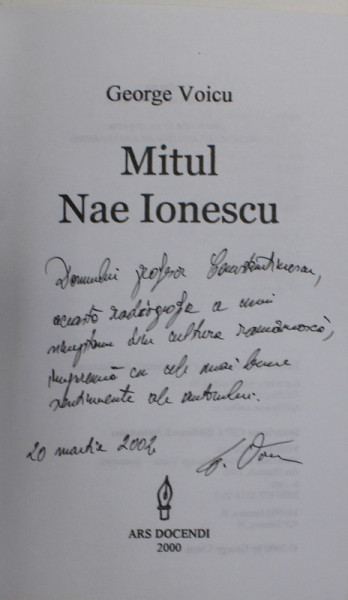 George Voicu
Mitul
Nae Ionescu
Domnului profesor Constantinescu,
această radiografie a unui
simptom din cultura românească,
împreună cu cele mai bune
sentimente ale autorului.
20 martie 2002
G. Voicu
ARS DOCENDI
2000